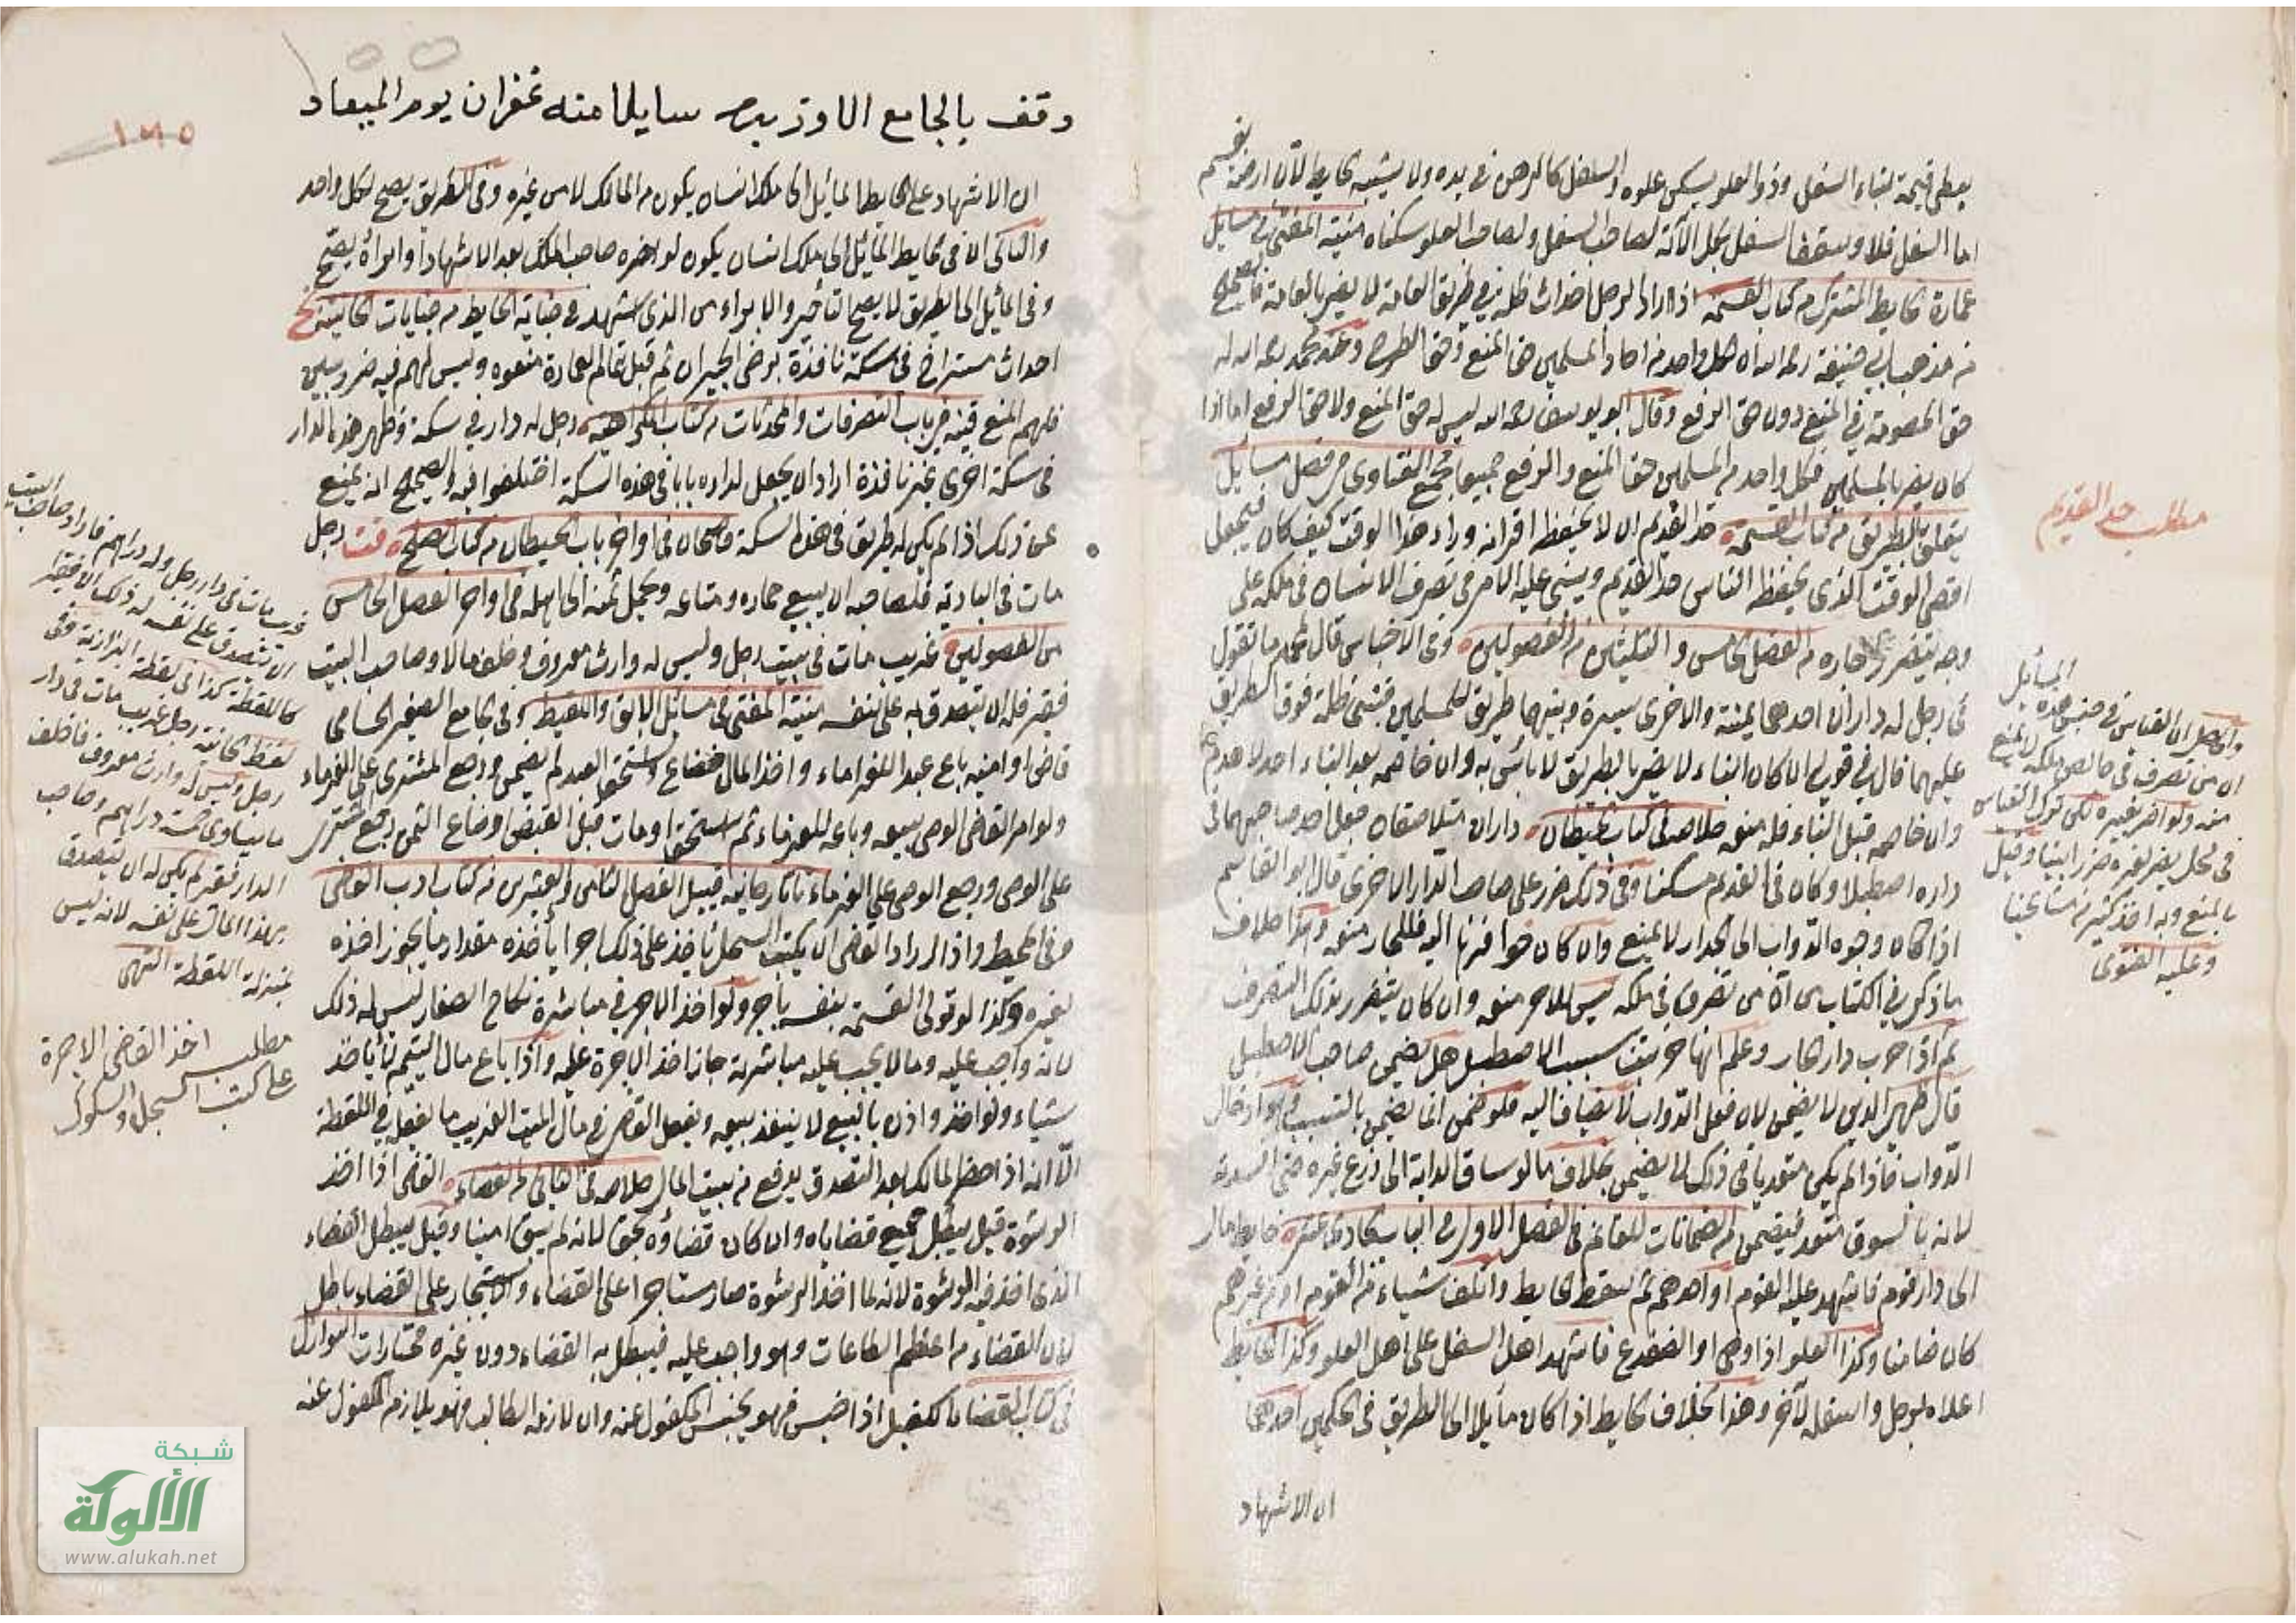 يعطى قيمة لبناء السفل وذو العلو يسكن علوه والسفل كالرهن في يده ولا يشبه الحايط لأن ارضه تقسم
اما السفل فلا وسقف السفل بكل الآلة لصاحب السفل ولصاحب العلو سكناه منية المفتى في مسايل
عمارة الحايط المشترك من كتاب القسمة اذا اراد الرجل احداث ظلة في طريق العامة لا يضر بالعامة فالصحيح
من مذهب ابي حنيفة رحمه الله ان لكل واحد من احاد المسلمين حق المنع وحق الطرح وعند محمد رحمه الله له
حق الخصومة في المنع دون حق الرفع وقال ابو يوسف رحمه الله ليس له حق المنع ولا حق الرفع اما اذا
كان يضر بالمسلمين فلكل واحد من المسلمين حق المنع والرفع جميعا مجمع الفتاوى من فصل مسايل
يتعلق بالطريق من كتاب القسمة حد القديم ان لا يحفظ اقرانه وراء هذا الوقت كيف كان فيجعل
اقصى الوقت الذى يحفظ الناس حد القديم ويبنى عليه الامر في تصرف الانسان في ملكه على
وجه يتضرر جاره من الفصل الخامس والثلثين من الفصولين وفي الاجناس قال محمد ما تقول
في رجل له داران احدهما يمنة والاخرى يسرة وبينهما طريق للمسلمين فبنى ظلة فوق الطريق
عليهما قال في قولي ان كان البناء لا يضر بالطريق لا باس به وان خاصمه بعد البناء احد لا هدم
وان خاصمه قبل البناء فله منعه خلاصه في كتاب الحيطان داران متلاصقان جعل احد صاحبهما في
داره اصطبلا وكان في القديم مسكنا وفي ذلك ضرر على صاحب الدار الاخرى قال ابو القاسم
اذا كان وجوه الدواب الى الجدار لا يمنع وان كان حوافرها اليه فللجار منعه وهذا خلاف
ما ذكر في الكتاب من ان من تصرف في ملكه ليس للاخر منعه وان كان يتضرر بذلك التصرف
ثم اذا خرب دار الجار وعلم انها خربت بسبب الاصطبل هل يضمن صاحب الاصطبل
قال ظهير الدين لا يضمن لان فعل الدواب لا يضاف اليه فلو ضمن انما يضمن بالتسبب وهو ادخال
الدواب فاذا لم يكن متعديا في ذلك لا يضمن بخلاف ما لو ساق الدابة الى زرع غيره حتى افسدته
لانه بالسوق متعد فيضمن من الضمانات للغانم في الفصل الاول من الباب الحادي عشر حايط مال
الى دار قوم فاشهد عليه القوم او احدهم ثم سقط الحايط واتلف شياء من القوم او من غيرهم
كان ضامنا وكذا العلو اذا وهى او انصدع فاشهد اهل السفل على اهل العلو وكذا الحايط
اعلاه لرجل واسفله لآخر وهذا بخلاف الحايط اذا كان مايلا الى الطريق في الحكمين احدهما
ان الاشهاد
مطلب حد القديم
والحاصل ان القياس في جنس هذه المسايل
ان من تصرف في خالص ملكه لا يمنع
منه ولو اضر بغيره لكن ترك القياس
في محل يضر لغيره ضررا بينا وقيل
بالمنع وبه اخذ كثير من مشايخنا
وعليه الفتوى
وقف بالجامع سايلا منه غفران يوم الميعاد
١٣٥
ان الاشهاد على الحايط المايل الى ملك انسان يكون من المالك لا من غيره وفي الطريق يصح لكل واحد
والثاني ان في الحايط المايل الى ملك انسان يكون لو اخره صاحب الملك بعد الاشهاد او ابراه يصح
وفي المايل الى الطريق لا يصح التأخير والابراء من الذى اشهد في جناية الحايط من جنايات الخانية
احداث مستراح في سكة نافذة برضى الجيران ثم قبل تمام العمارة منعوه وليس لهم فيه ضرر بين
فلهم المنع قنيه في باب التصرفات والمحدثات من كتاب الكراهية رجل له دار في سكة وظهر هذه الدار
في سكة اخرى غير نافذة اراد ان يجعل لداره بابا في هذه السكة اختلفوا فيه والصحيح انه يمنع
عن ذلك اذا لم يكن له طريق في هذه السكة قاضيخان في اواخر باب الحيطان من كتاب الصلح رجل
مات في البادية فلصاحبه ان يبيع حماره ومتاعه ويحمل ثمنه الى اهله في اواخر الفصل الخامس
من الفصولين غريب مات في بيت رجل وليس له وارث معروف وخلف مالا وصاحب البيت
فقير فله ان يتصدق به على نفسه منية المفتى في مسائل الابق واللقيط وفي الجامع الصغير الحسامى
قاض او امينه باع عبد الغرماء واخذ المال فضاع واستحق العبد لم يضمن ورجع المشترى على الغرماء
ولو امر القاضى الوصى ببيعه وباعه للغرماء ثم استحق او مات قبل القبض وضاع الثمن رجع المشترى
على الوصى ورجع الوصى على الغرماء تاتارخانيه قبيل الفصل الثامن والعشرين من كتاب ادب القاضى
وفي المحيط واذا اراد القاضى ان يكتب السجل ياخذ على ذلك اجرا يأخذه مقدار ما يجوز اخذه
لغيره وكذا لو تولى القسمة بنفسه باجر ولو اخذ الاجر في مباشرة نكاح الصغار ليس له ذلك
لانه واجب عليه وما لا يجب عليه مباشرته جاز اخذ الاجرة عليه واذا باع مال اليتيم لا يأخذ
شياء ولو اخذ واذن بالبيع لا ينفذ بيعه ويفعل القاضى في مال الميت الغريب ما يفعل في اللقطة
الا انه اذا حضر المالك بعد التصدق يدفع من بيت المال خلاصه في الثانى من القضاء القاضى اذا اخذ
الرشوة قيل يبطل جميع قضاياه وان كان قضاؤه بحق لانه لم يبق امينا وقيل يبطل القضاء
الذى اخذ فيه الرشوة لانه لما اخذ الرشوة صار مستاجرا على القضاء والاستيجار على القضاء باطل
لان القضاء من اعظم الطاعات وهو واجب عليه فيبطل به القضاء دون غيره مختارات النوازل
في كتاب القضاء الكفيل اذا حبس فهو يحبس المكفول عنه وان لازمه الطالب فهو يلازم المكفول عنه
غريب مات في دار رجل وله دراهم فاراد صاحب البيت
ان يتصدق على نفسه له ذلك ان فقيرا
كاللقطة كذا في لقطة البزازية وفي
لقطة الخانية رجل غريب مات في دار
رجل وليس له وارث معروف فاخلف
ما يساوى خمسة دراهم وصاحب
الدار فقير لم يكن له ان يتصدق
بهذا المال على نفسه لانه ليس
بمنزلة اللقطة انتهى
مطلب اخذ القاضى الاجرة
على كتب السجل والصكوك
شبكة
الألوكة
www.alukah.net